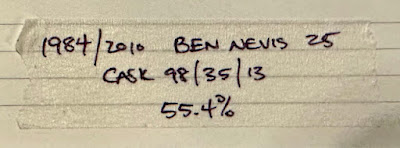 1984/2010 BEN NEVIS 25
CASK 98/35/13
55.4%